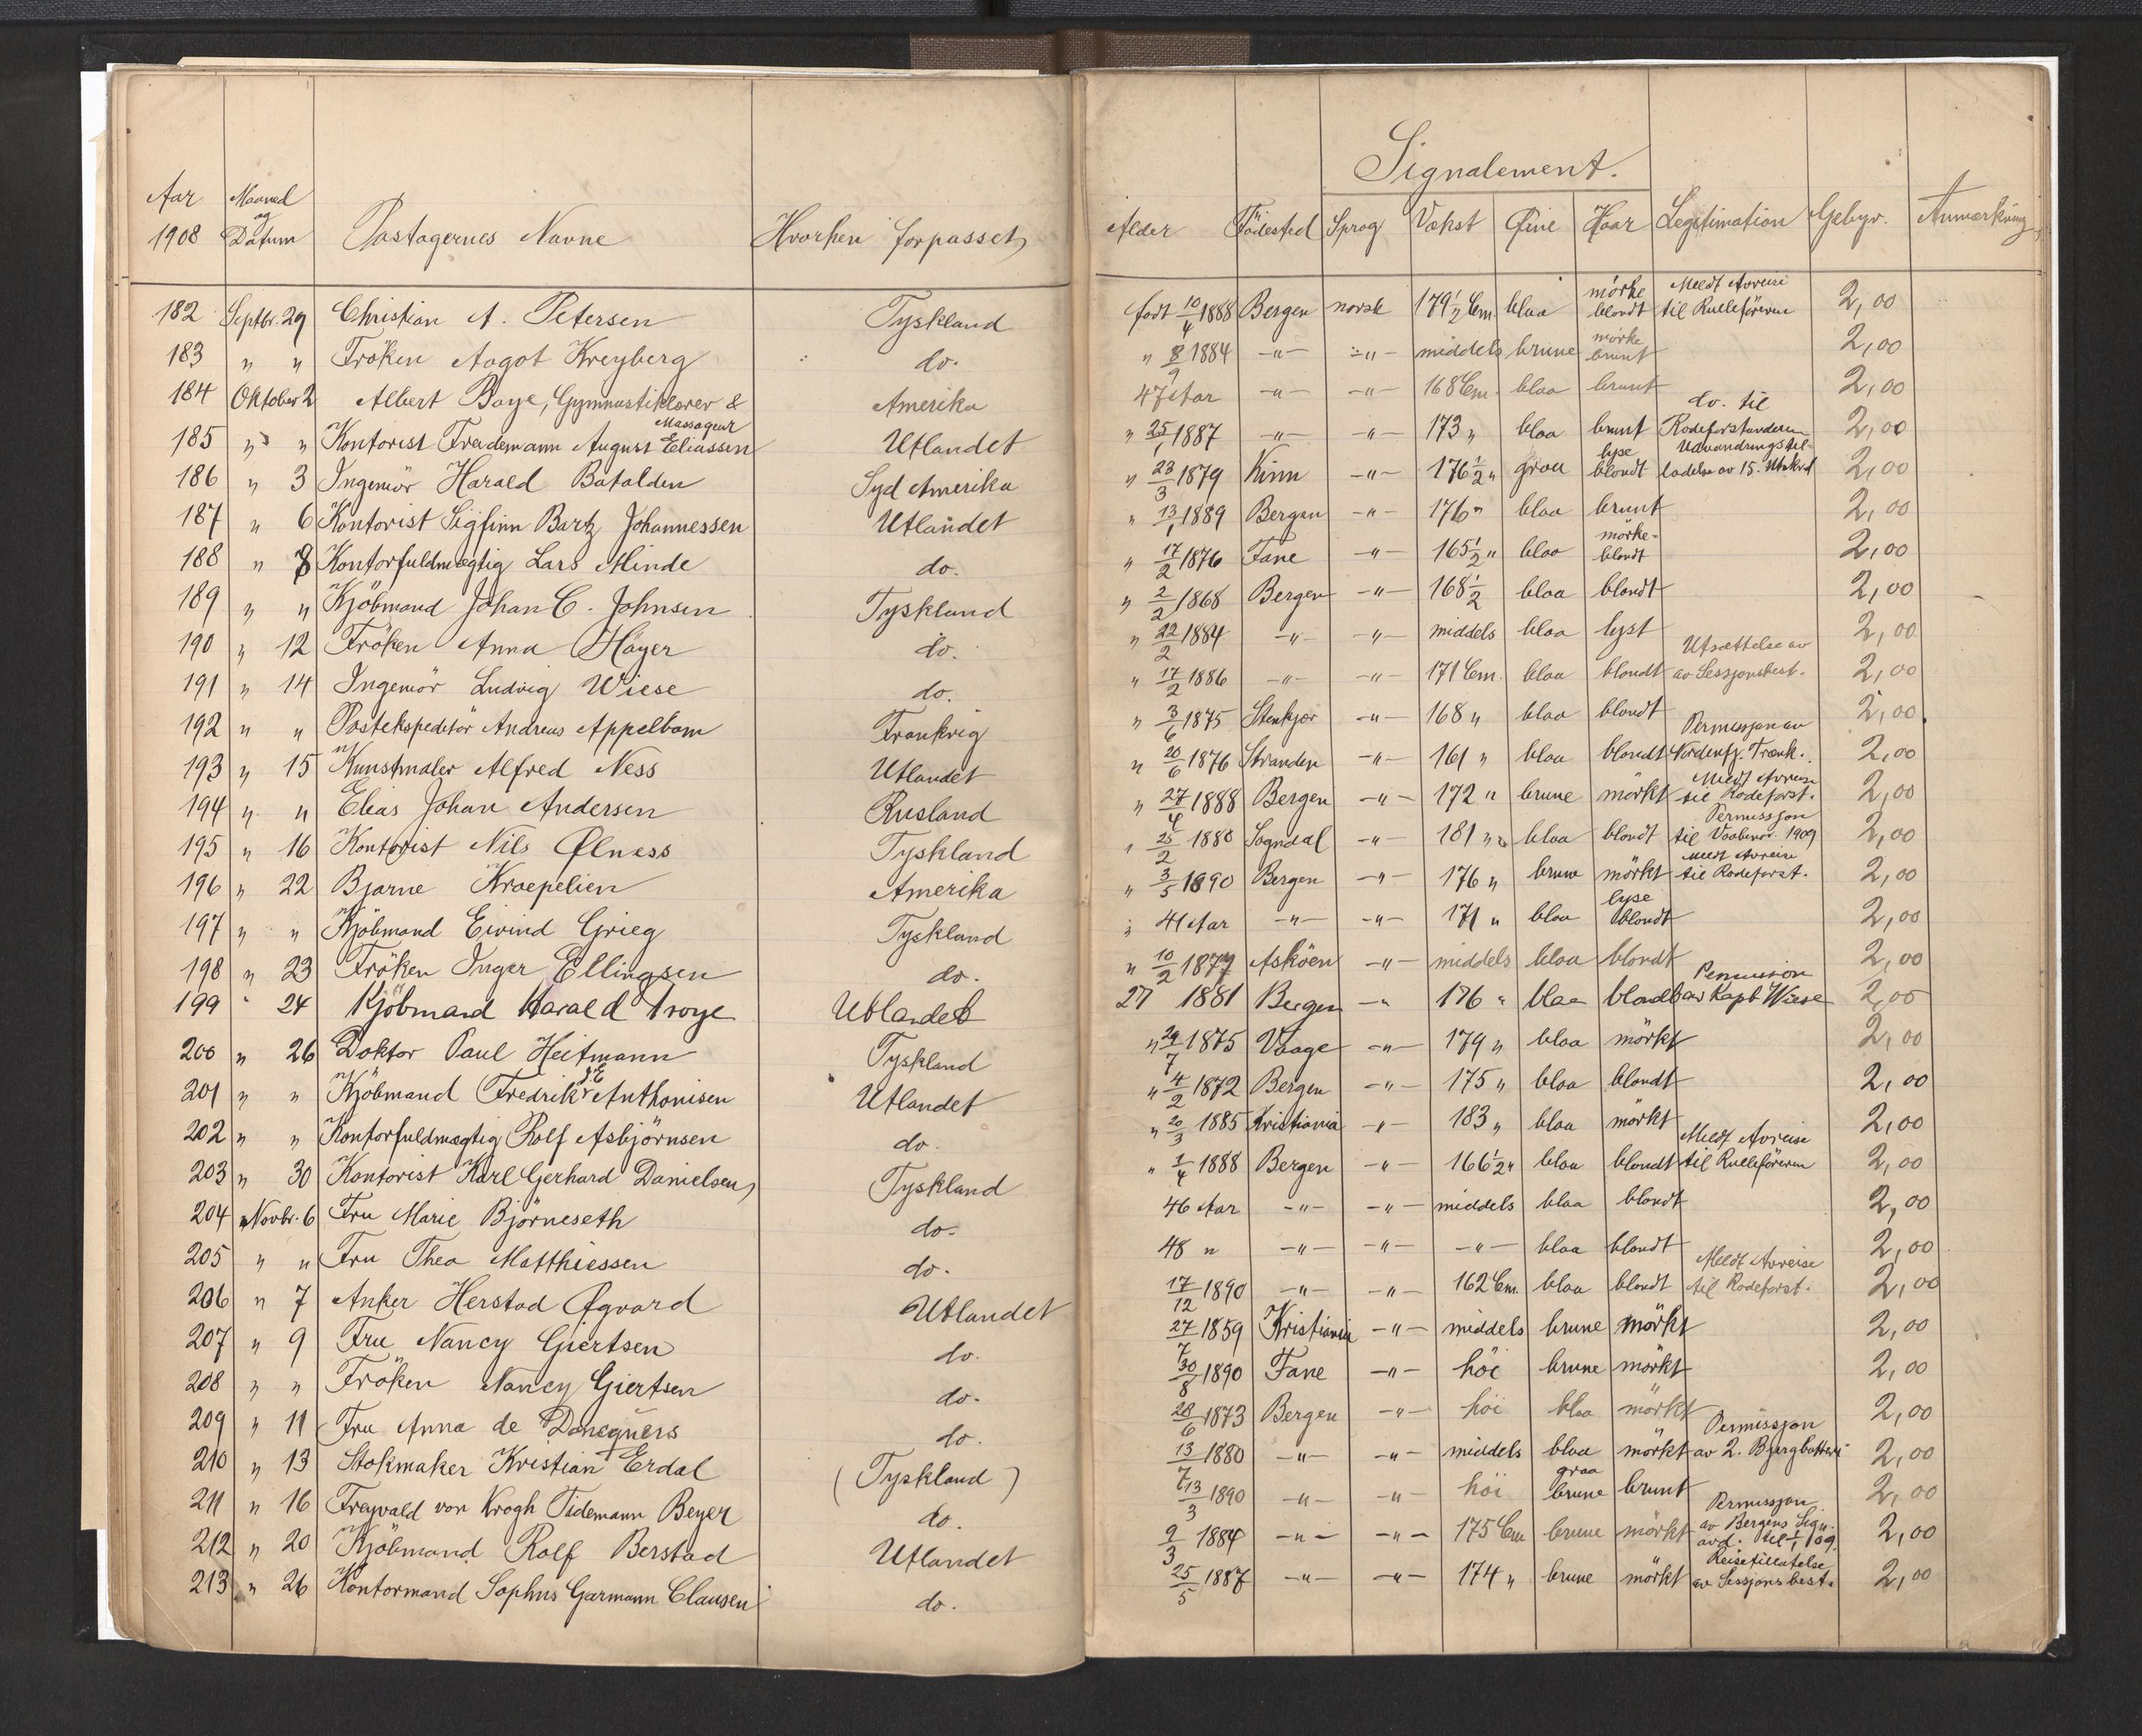 Signalement.
Aar 1908 Maaned og Datum Pastagernes Navne Hvorhen forpasset Alder Födested Sprog Vekst Øine Haar Legitimation Gebyr. Anmærkning
182 Septbr. 29 Christian A. Petersen Tyskland født 10/4 1888 Bergen norsk 179 1/2 Cm blaa mörke blondt Meldt Avreise til Rulleföreren 2,00
183 " " Fröken Aagot Kreyberg do. " 8/9 1884 -"- -"- middels brune mörke brunt 2,00
184 Oktober 2 Albert Baye, Gymnastiklærer & Massageur Amerika 47 Aar -"- -"- 168 Cm. blaa brunt 2,00
185 " " Kontorist Frademann August Eliassen Utlandet " 25/1 1887 -"- -"- 173 " blaa brunt do. til Rodeforstanderen 2,00
186 " 3 Ingeniör Harald Batalden Syd Amerika " 23/3 1879 Kinn -"- 176 1/2 " graa lyse blondt Udvandringstilladelse av 15. Utskrd 2,00
187 " 6 Kontorist Sigfinn Bartz Johannessen Utlandet " 13/1 1889 Bergen -"- 176 " blaa brunt 2,00
188 " 8 Kontorfuldmægtig Lars Minde do. " 17/2 1876 Fane -"- 165 1/2 " blaa mörke-blondt 2,00
189 " " Kjöbmand Johan C. Johnsen Tyskland " 2/2 1868 Bergen -"- 168 1/2 blaa blondt 2,00
190 " 12 Fröken Anna Höyer do. " 22/2 1884 -"- -"- middels blaa lyst 2,00
191 " 14 Ingeniör Ludvig Wiese do. " 17/2 1886 -"- -"- 171 Cm. blaa blondt Utsættelse av av Sessjonsbest. 2,00
192 " " Postekspeditör Andreas Appelbom Frankrig " 3/6 1875 Stenkjær -"- 168 " blaa blondt 2,00
193 " 15 Kunstmaler Alfred Ness Utlandet " 20/6 1876 Stranden -"- 161 " blaa blondt Permissjon av Nordenfj. Træsk. 2,00
194 " " Elias Johan Andersen Rusland " 27/4 1888 Bergen -"- 172 " brune mörkt Meldt Avreise til Rodeforst. 2,00
195 " 16 Kontorist Nils Ølness Tyskland " 25/2 1880 Sogndal -"- 181 " blaa blondt Permissjon til Vaabenöv. 1909 2,00
196 " 22 Bjarne Kroepelien Amerika " 3/5 1890 Bergen -"- 176 " brune mörkt Meldt Avreise til Rodeforst. 2,00
197 " " Kjöbmand Eivind Grieg Tyskland " 41 Aar -"- -"- 171 " blaa lyse blondt 2,00
198 " 23 Fröken Inger Ellingsen do. " 10/2 1877 Asköen -"- middels blaa blondt 2,00
199 " 24 Kjöbmand Harald Troye Utlandet 27 1881 Bergen -" 176 " blaa blondt Permission av Kapt Wiese 2,00
200 " 26 Doktor Paul Heitmann Tyskland " 29/7 1875 Vaage -"- 179 " blaa mörkt 2,00
201 " " Kjöbmand Fredrik J E Anthonisen Utlandet " 4/2 1872 Bergen -"- 175 " blaa blondt 2,00
202 " " Kontorfuldmægtig Rolf Asbjörnsen do. " 20/3 1885 Kristiania -"- 183 " blaa mörkt 2,00
203 " 30 Kontorist Karl Gerhard Danielsen Tyskland " 1/4 1888 Bergen -"- 166 1/2 " blaa blondt Meldt Avreise til Rulleföreren 2,00
204 Novbr. 6 Fru Marie Björneseth do. 46 Aar -"- -"- middels blaa blondt 2,00
205 " " Fru Thea Matthiessen do. 48 " -"- -"- -"- blaa blondt 2,00
206 " 7 Anker Herstad Øgvard Utlandet 17/12 1890 -"- -"- 162 Cm. blaa blondt Meldt Avreise til Rodeforst. 2,00
207 " 9 Fru Nancy Giertsen do. 27/7 1859 Kristiania -"- middels brune mörkt 2,00
208 " " Fröken Nancy Giertsen do. 30/8 1890 Fane -"- höi brune mörkt 2,00
209 " 11 Fru Anna de do. 28/6 1873 Bergen -"- höi blaa mörkt 2,00
210 " 13 Stokmaker Kristian Erdal (Tyskland) 13/7 1880 -"- -"- middels blaa mörkt Permissjon av 2. Bjergbatteri 2,00
211 " 16 Freyvald von Krogh Tidemann Beyer do. 13/3 1890 -"- -"- höi graa brune brunt 2,00
212 " 20 Kjöbmand Rolf Berstad Utlandet 2/3 1884 -"- -"- 175 Cm brune mörkt Permissjon av Bergens Sign. avd. til 1/1 09. 2,00
213 " 26 Kontormand Sophus Garmann Clausen do. 25/5 1887 -"- -"- 174 " brune mörkt Reisetillatelse av Sessjonsbest. 2,00